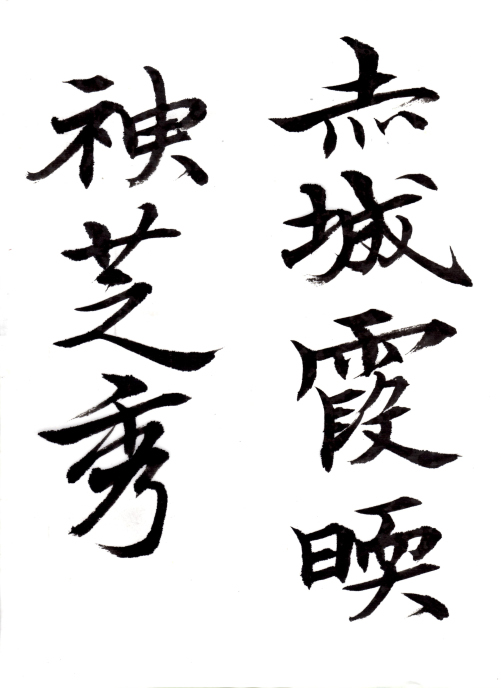 赤城霞㬉
神芝秀